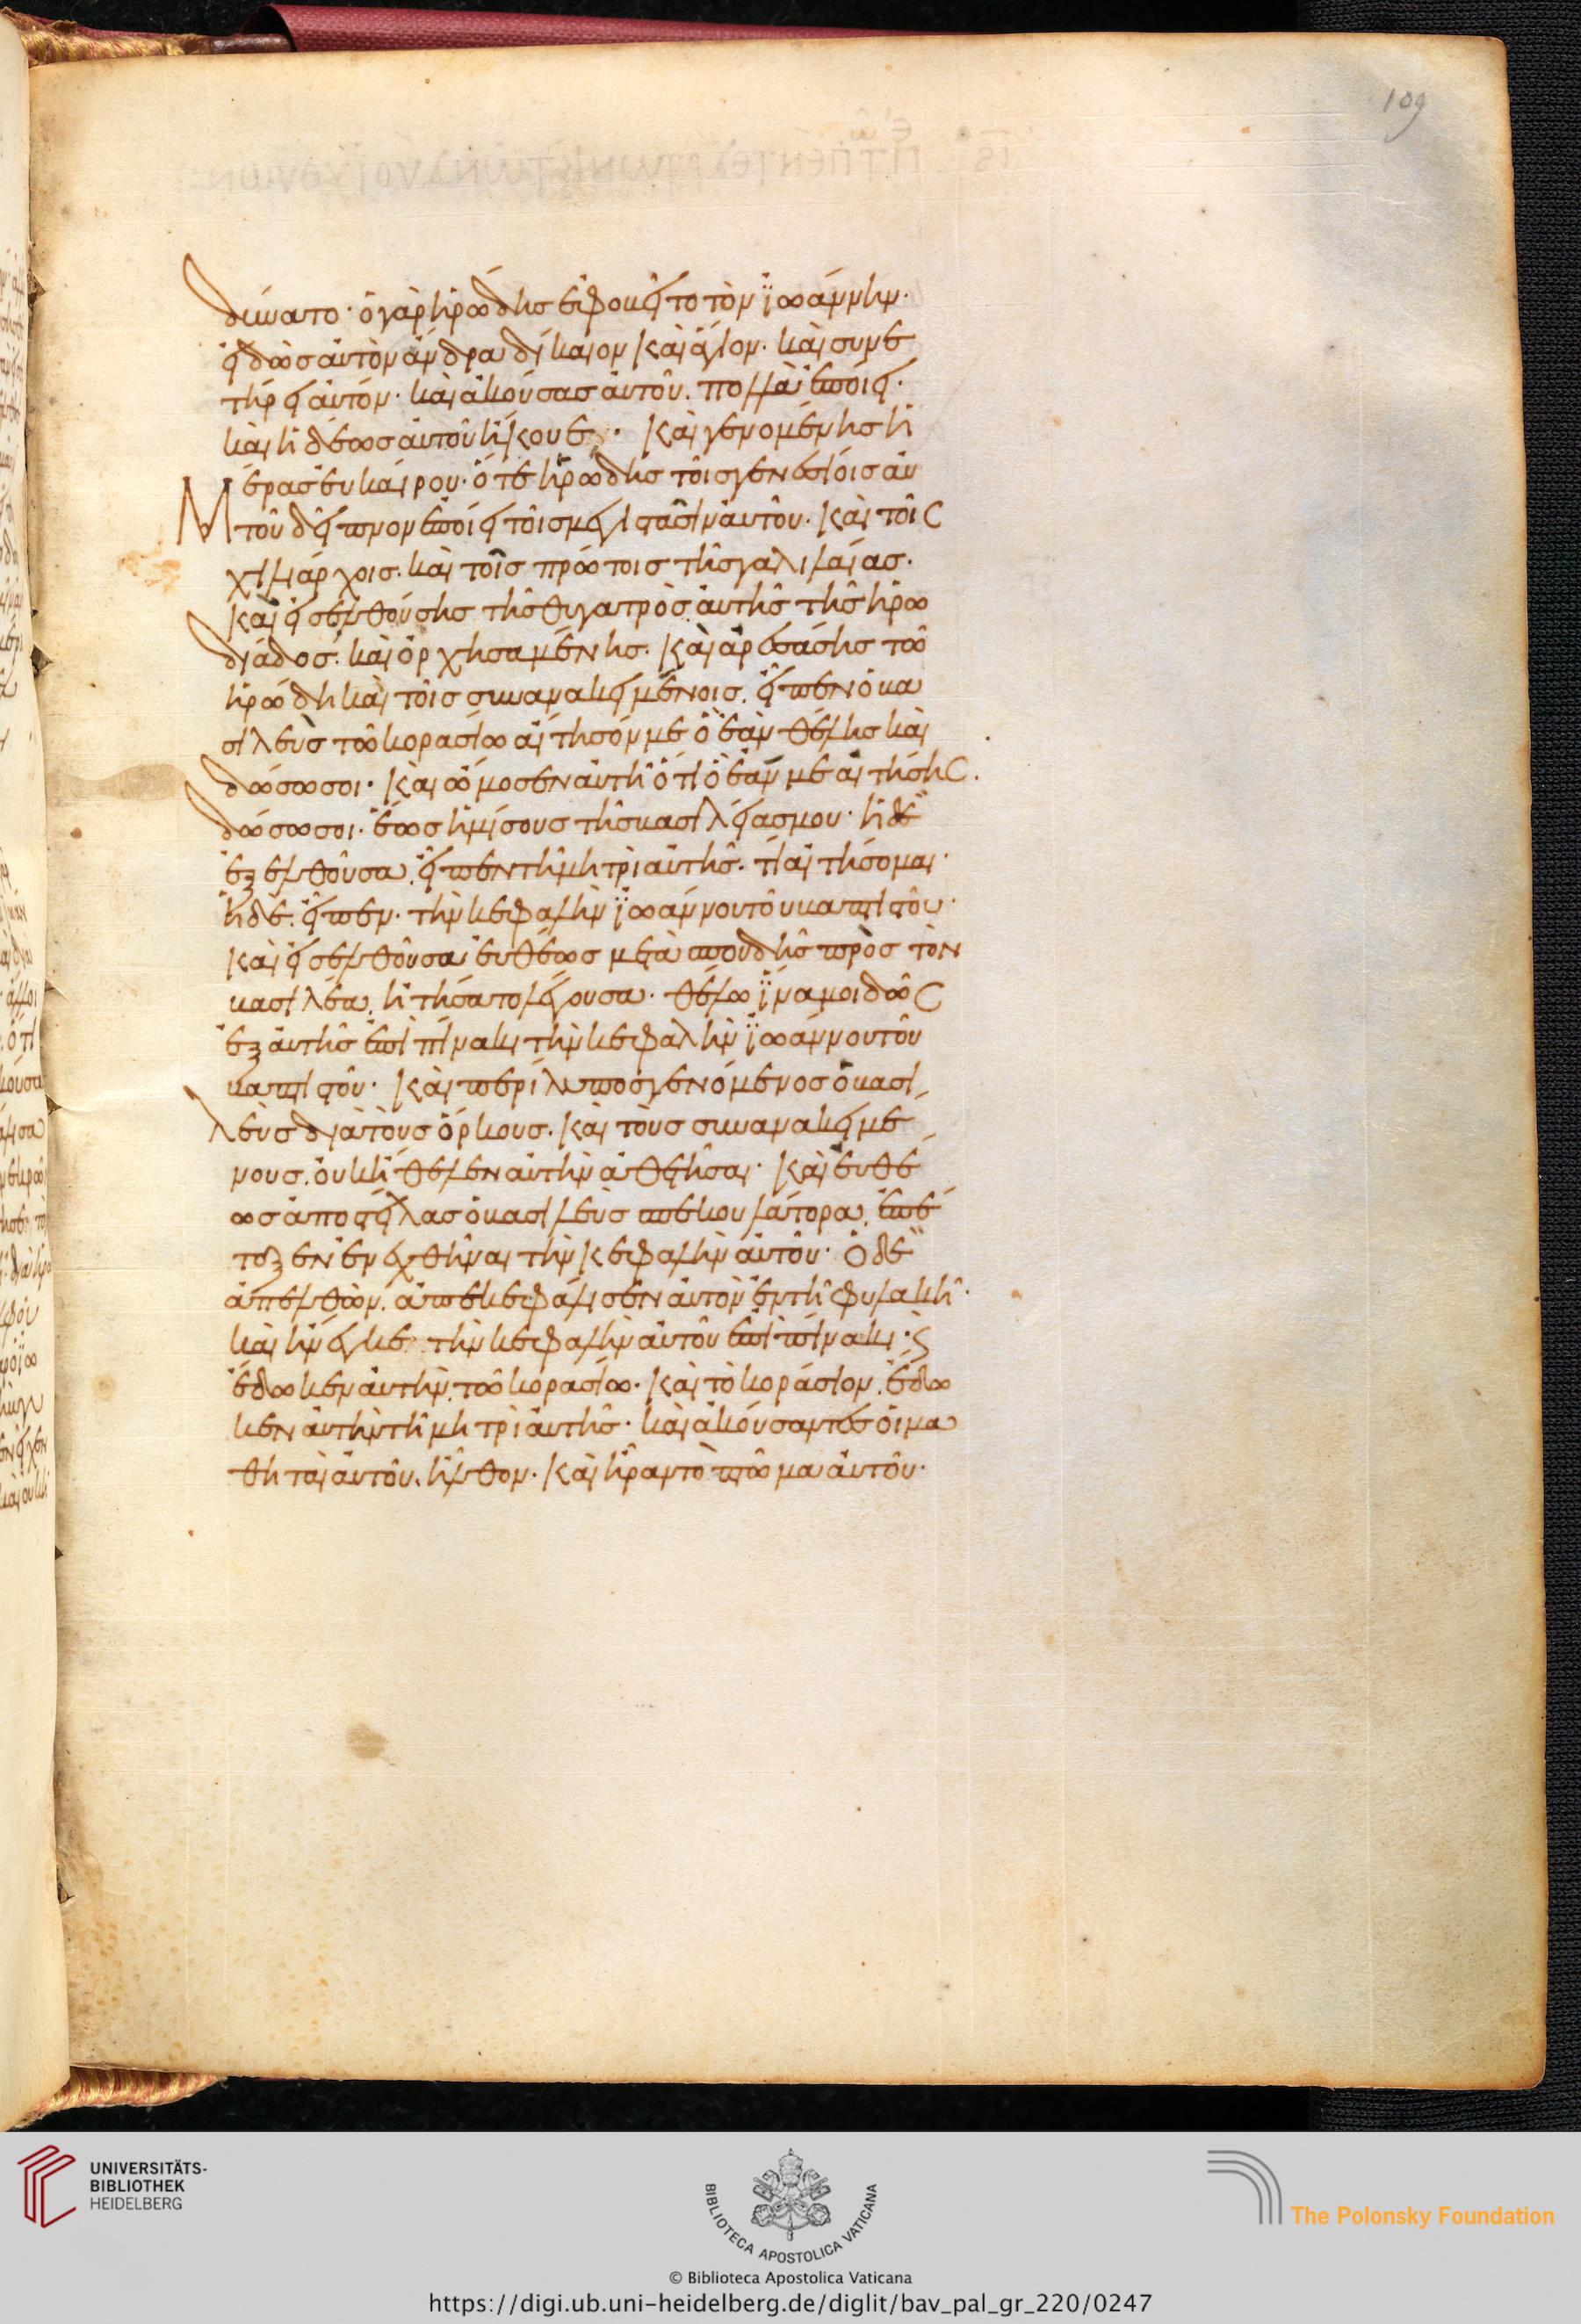 109
δύνατο· ὁ γὰρ ἡρώδης ἐφοβεῖτο τὸν ϊωάννην·
εἰδὼς αὐτὸν ἄνδρα δίκαιον καὶ ἅγιον· καὶ συνε
τήρει αὐτόν· καὶ ἀκούσας αὐτοῦ. πολλὰ ἐποίει·
καὶ ἡδέως αὐτοῦ ἤκουε· καὶ γενομένης ἡ
μέρας εὐκαίρου· ὅτε ἡρώδης τοῖς γενεσίοις αὐ
τοῦ δεῖπνον ἐποίει τοῖς μεγιστᾶσιν αὐτοῦ· καὶ τοῖς
χιλιάρχοις· καὶ τοῖς πρώτοις τῆς γαλιλαίας·
καὶ εἰσελθούσης τῆς θυγατρὸς αὐτῆς τῆς ἡρω
διάδος· καὶ ὀρχησαμένης· καὶ ἀρεσάσης τῶ
ἡρώδη καὶ τοῖς συνανακειμένοις. εἶπεν ὁ βα
σιλεὺς τῶ κορασίω αἴτησόν με ὃ ἐὰν θέλης καὶ
δώσω σοι· καὶ ὤμοσεν αὐτῆ ὅτι ὃ ἐάν με αἰτήσης.
δώσω σοι· ἕως ἡμίσους τῆς βασιλείας μου· ἡ δὲ
ἐξελθοῦσα. εἶπεν τῆ μητρὶ αὐτῆς· τί αἰτήσομαι·
ἡ δὲ. εἶπεν· τὴν κεφαλὴν ϊωάννου τοῦ βαπτιστοῦ·
καὶ εἰσελθοῦσα εὐθέως μετὰ σπουδῆς πρὸς τὸν
βασιλέα. ἠτήσατο λέγουσα· θέλω ϊνα μοι δῶς
ἐξ αὐτῆς ἐπὶ πίνακι τὴν κεφαλὴν ϊωάννου τοῦ
βαπτιστοῦ· καὶ περίλυπος γενόμενος ὁ βασι
λεὺς διὰ τοὺς ὅρκους· καὶ τοὺς συνανακειμέ
νους. οὐκ ἤθελεν αὐτὴν ἀθετῆσαι· καὶ εὐθέ
ως ἀποστείλας ὁ βασιλεὺς σπεκουλάτορα. ἐπέ
ταξεν ἐνεχθῆναι τὴν κεφαλὴν αὐτοῦ· ὁ δὲ
ἀπελθὼν. ἀπεκεφάλισεν αὐτὸν ἐν τῆ φυλακῆ·
καὶ ἤνεγκε τὴν κεφαλὴν αὐτοῦ ἐπὶ πίνακι· ϗ
ἔδωκεν αὐτὴν. τῶ κορασίω· καὶ τὸ κοράσιον. ἔδω
κεν αὐτὴν τῆ μητρὶ αὐτῆς· καὶ ἀκούσαντες οἱ μα
θηταὶ αὐτοῦ. ἦλθον· καὶ ἦραν τὸ πτῶμα αὐτοῦ·
UNIVERSITÄTS-
BIBLIOTHEK
HEIDELBERG
BIBLIOTECA APOSTOLICA VATICANA
The Polonsky Foundation
© Biblioteca Apostolica Vaticana
https://digi.ub.uni-heidelberg.de/diglit/bav_pal_gr_220/0247